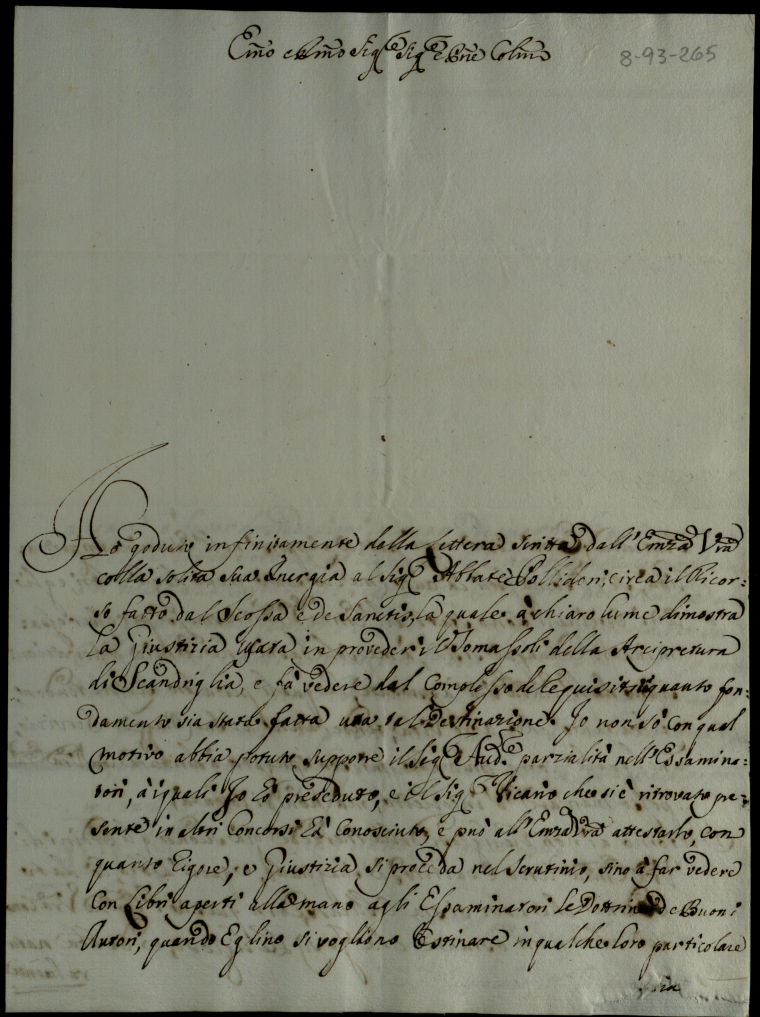 Emo e Rmo Sigre Sigre Prne Colmo
8-93-265
Hò goduto infinitamente della lettera scritta dall'Emza Vra
colla solita sua Energia al Sigr Abbate Pollidori, circa il Ricor-
so fatto dal Scossa e de Sanctis, la quale à chiaro lume dimostra
la Giustizia usata in provedere il Tomassoli della Arcipretura
di Scandriglia, e fà vedere dal Complesso de requisiti quanto fon-
damento sia stata fatta una tal destinazione. Io non sò con qual
motivo abbia potuto supporre il Sigr Audre parzialità nell'Essamina-
tori, à i quali Io hò preseduto, e il Sigr Vicario che si è ritrovato pre-
sente in altri Concorsi hà conosciuto, e può all'Emza Vra attestarlo, con
quanto Rigore, e Giustizia si proceda nel scrutinio, sino à far vedere
con Libri aperti alla mano agli Essaminatori le Dottrine de Buoni
Autori, quando Eglino si vogliono Ostinare in qualche loro particolare